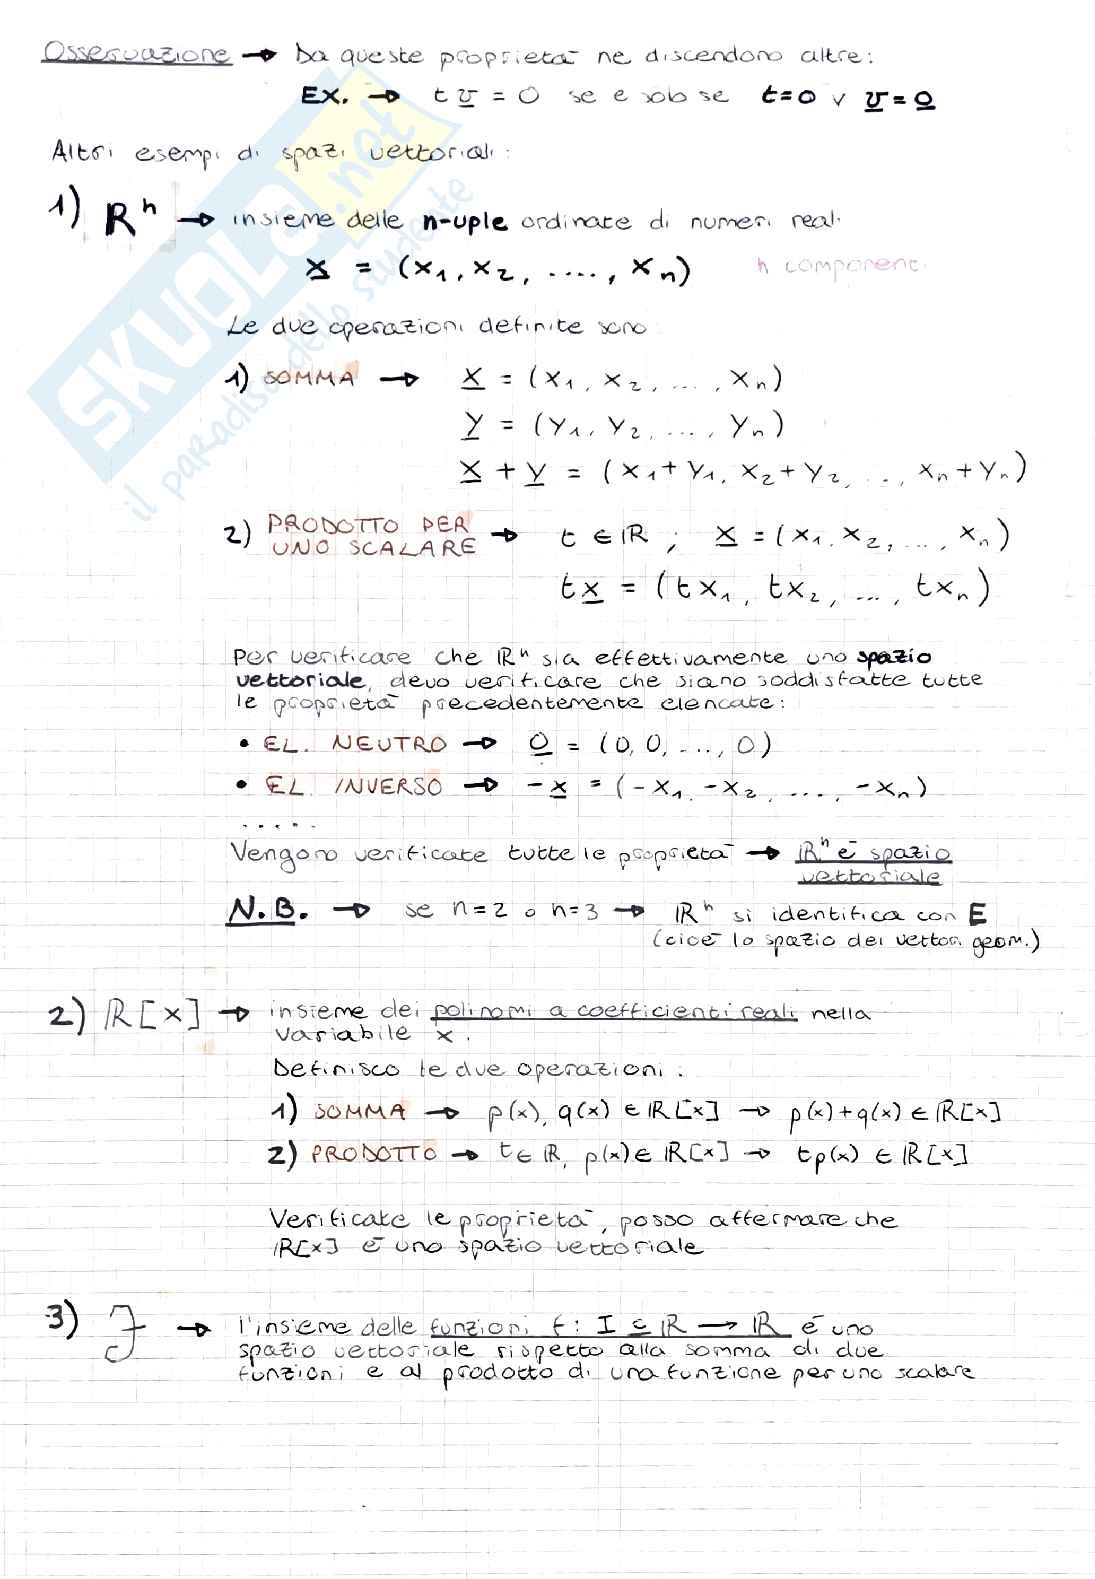 Osservazione → Da queste proprietà ne discendono altre:
EX. → t v = 0 se e solo se t=0 ∨ v = 0
Altri esempi di spazi vettoriali:
1) ℝⁿ → insieme delle n-uple ordinate di numeri reali
x = (x₁, x₂, ...., xₙ) n componenti
Le due operazioni definite sono
1) SOMMA → x = (x₁, x₂, ..., xₙ)
y = (y₁, y₂, ..., yₙ)
x + y = (x₁+y₁, x₂+y₂, ..., xₙ+yₙ)
2) PRODOTTO PER
UNO SCALARE → t ∈ ℝ ; x = (x₁, x₂, ..., xₙ)
t x = (t x₁, t x₂, ..., t xₙ)
Per verificare che ℝⁿ sia effettivamente uno spazio
vettoriale, devo verificare che siano soddisfatte tutte
le proprietà precedentemente elencate:
• EL. NEUTRO → 0 = (0, 0, ..., 0)
• EL. INVERSO → -x = (-x₁, -x₂, ..., -xₙ)
.....
Vengono verificate tutte le proprietà → ℝⁿ è spazio
vettoriale
N.B. → se n=2 o n=3 → ℝⁿ si identifica con E
(cioè lo spazio dei vettori geom.)
2) ℝ[x] → insieme dei polinomi a coefficienti reali nella
variabile x.
Definisco le due operazioni:
1) SOMMA → p(x), q(x) ∈ ℝ[x] → p(x)+q(x) ∈ ℝ[x]
2) PRODOTTO → t ∈ ℝ, p(x) ∈ ℝ[x] → t p(x) ∈ ℝ[x]
Verificate le proprietà, posso affermare che
ℝ[x] è uno spazio vettoriale
3) ℱ → l'insieme delle funzioni f: I ⊆ ℝ → ℝ è uno
spazio vettoriale rispetto alla somma di due
funzioni e al prodotto di una funzione per uno scalare
SKUOLA.net
il paradiso dello studente